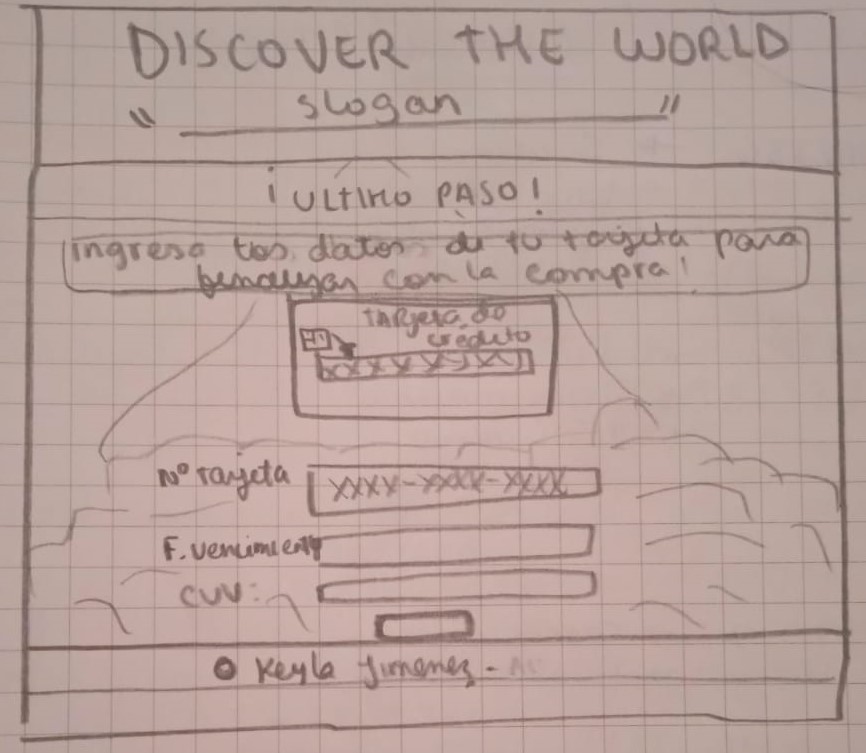 DISCOVER THE WORLD
" slogan "
¡ULTIMO PASO!
ingresa los datos de tu tarjeta para
finalizar con la compra!
TARjeta de
credito
XXXXXXXX
Nº tarjeta XXXX-XXXX-XXXX
F. vencimiento
CVV:
Keyla Jimenez -